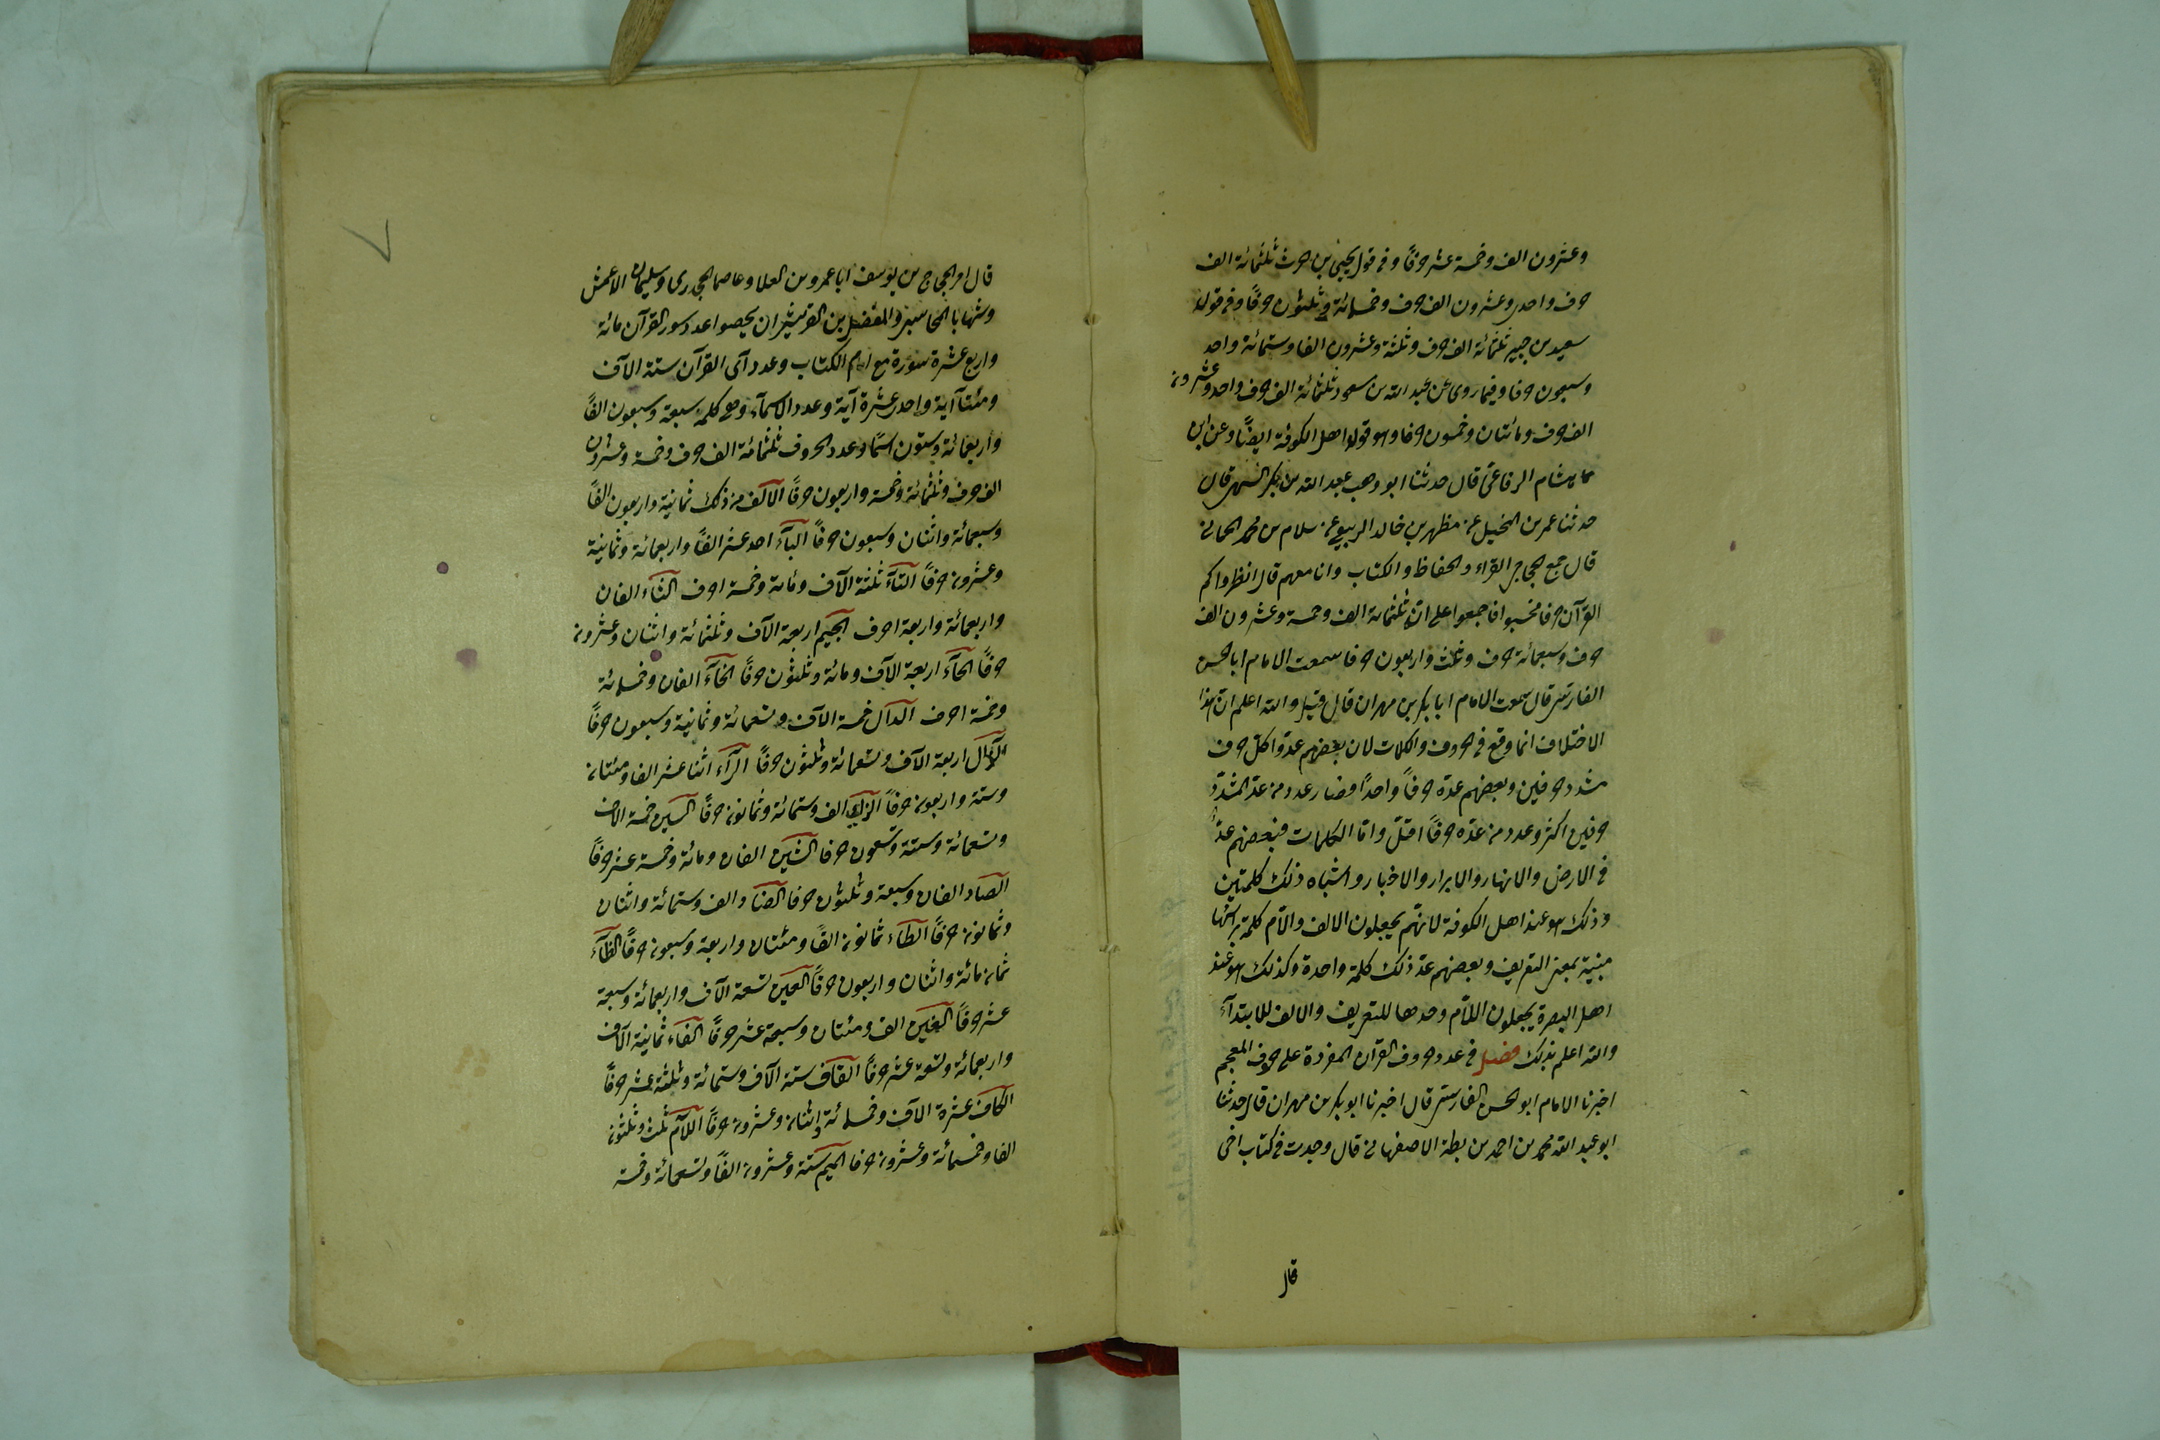 وعشرون الف وخمسة عشر حرفًا وفي قول يحيى بن الحرث ثلثمائة الف
حرف واحد وعشرون الف حرف وخمسمائة وثلثون حرفًا وفي قول
سعيد بن جبير ثلثمائة الف حرف وثلثة وعشرون الفا وستمائة واحد
وسبعون حرفا وفيما روى عن عبد الله بن مسعود ثلثمائة الف حرف واحد وعشرون
الف حرف ومائتان وخمسون حرفا وهو قول اهل الكوفة ايضًا وعن ابن
هشام الرفاعى قال حدثنا ابو وهب عبد الله بن بكر السهمى قال
حدثنا عمر بن المنخيل عن مظهر بن خالد الربيعي عن سلام بن محمد الحمانى
قال جمع الحجاج القراء والحفاظ والكتاب وانا معهم قال انظروا كم
القرآن حرفا فحسبوا فاجمعوا على ان ثلثمائة الف وخمسة وعشرون الف
حرف وسبعمائة حرف وثلث واربعون حرفا سمعت الامام ابا الحسن
الفارسى قال سمعت الامام ابا بكر بن مهران قال قيل والله اعلم ان هذا
الاختلاف انما وقع في الحروف والكلمات لان بعضهم عدّوا كل حرف
مشدد حرفين وبعضهم عدّه حرفًا واحدًا فصار عدد من عد المشدّد
حرفين اكثر وعدد من عدّه حرفًا اقلّ واما الكلمات فبعضهم عدّ
في الارض والانهار والابرار والاخيار واشباه ذلك كلمتين
وذلك هو عند اهل الكوفة لانهم يجعلون الالف واللام كلمة براسها
مبنية بمعنى التعريف وبعضهم عدّ ذلك كلمة واحدة وكذلك هو عند
اهل البصرة يجعلون اللام وحدها للتعريف والالف للابتدآء
والله اعلم بذلك فصل في عدد حروف القرآن المفردة على حروف المعجم
اخبرنا الامام ابو الحسن الفارسى قال اخبرنا ابو بكر بن مهران قال حدثنا
ابو عبد الله محمد بن احمد بن بطة الاصفهانى قال وجدت في كتاب اخى
قال
قال امر الحجاج بن يوسف ابا عمرو بن العلا وعاصما الجحدرى وسليمان الاعمش
وشهابا المحاسنى والمفضل بن القرشى ان يحصوا عدد سور القرآن مائة
واربع عشرة سورة مع ام الكتاب وعدد آى القرآن ستة الآف
ومئتا آية واحد عشرة آية وعدد الاسمآء وهي كلمة سبعة وسبعون الفًا
واربعمائة وستون اسمًا وعدد الحروف ثلثمائة الف حرف وخمسة وعشرون
الف حرف وثلثمائة وخمسة واربعون حرفًا الالف من ذلك ثمانية واربعون الفًا
وسبعمائة واثنان وسبعون حرفًا البآء احد عشر الفًا واربعمائة وثمانية
وعشرون حرفًا التآء ثلثة الآف ومائة وخمسة احرف الثآء الفان
واربعمائة واربعة احرف الجيم اربعة الآف وثلثمائة واثنان وعشرون
حرفًا الحآء اربعة الآف ومائة وثلثون حرفًا الخآء الفان وخمسمائة
وخمسة احرف الدال خمسة الآف وتسعمائة وثمانية وسبعون حرفًا
الذال اربعة الآف وتسعمائة وثلثون حرفًا الرآء اثنا عشر الفا ومئتان
وستة واربعون حرفًا الزاى الف وستمائة وثمانون حرفًا السين خمسة الاف
وتسعمائة وستة وتسعون حرفا الشين الفان ومائة وخمسة عشر حرفًا
الصاد الفان وسبعة وثلثون حرفا الضاد الف وستمائة واثنان
وثمانون حرفًا الطآء ثمانون الفًا ومئتان واربعة وسبعون حرفًا الظآء
ثمان مائة واثنان واربعون حرفًا العين تسعة الآف واربعمائة وسبعة
عشر حرفًا الغين الف ومئتان وسبعة عشر حرفًا الفآء ثمانية الآف
واربعمائة وتسعة عشر حرفًا القاف ستة الآف وستمائة وثلثة عشر حرفًا
الكاف عشرة الآف وخمسمائة واثنان وعشرون حرفًا اللام ثلث وثلثون
الفا وخمسمائة وعشرون حرفا الميم ستة وعشرون الفًا وتسعمائة وخمسة